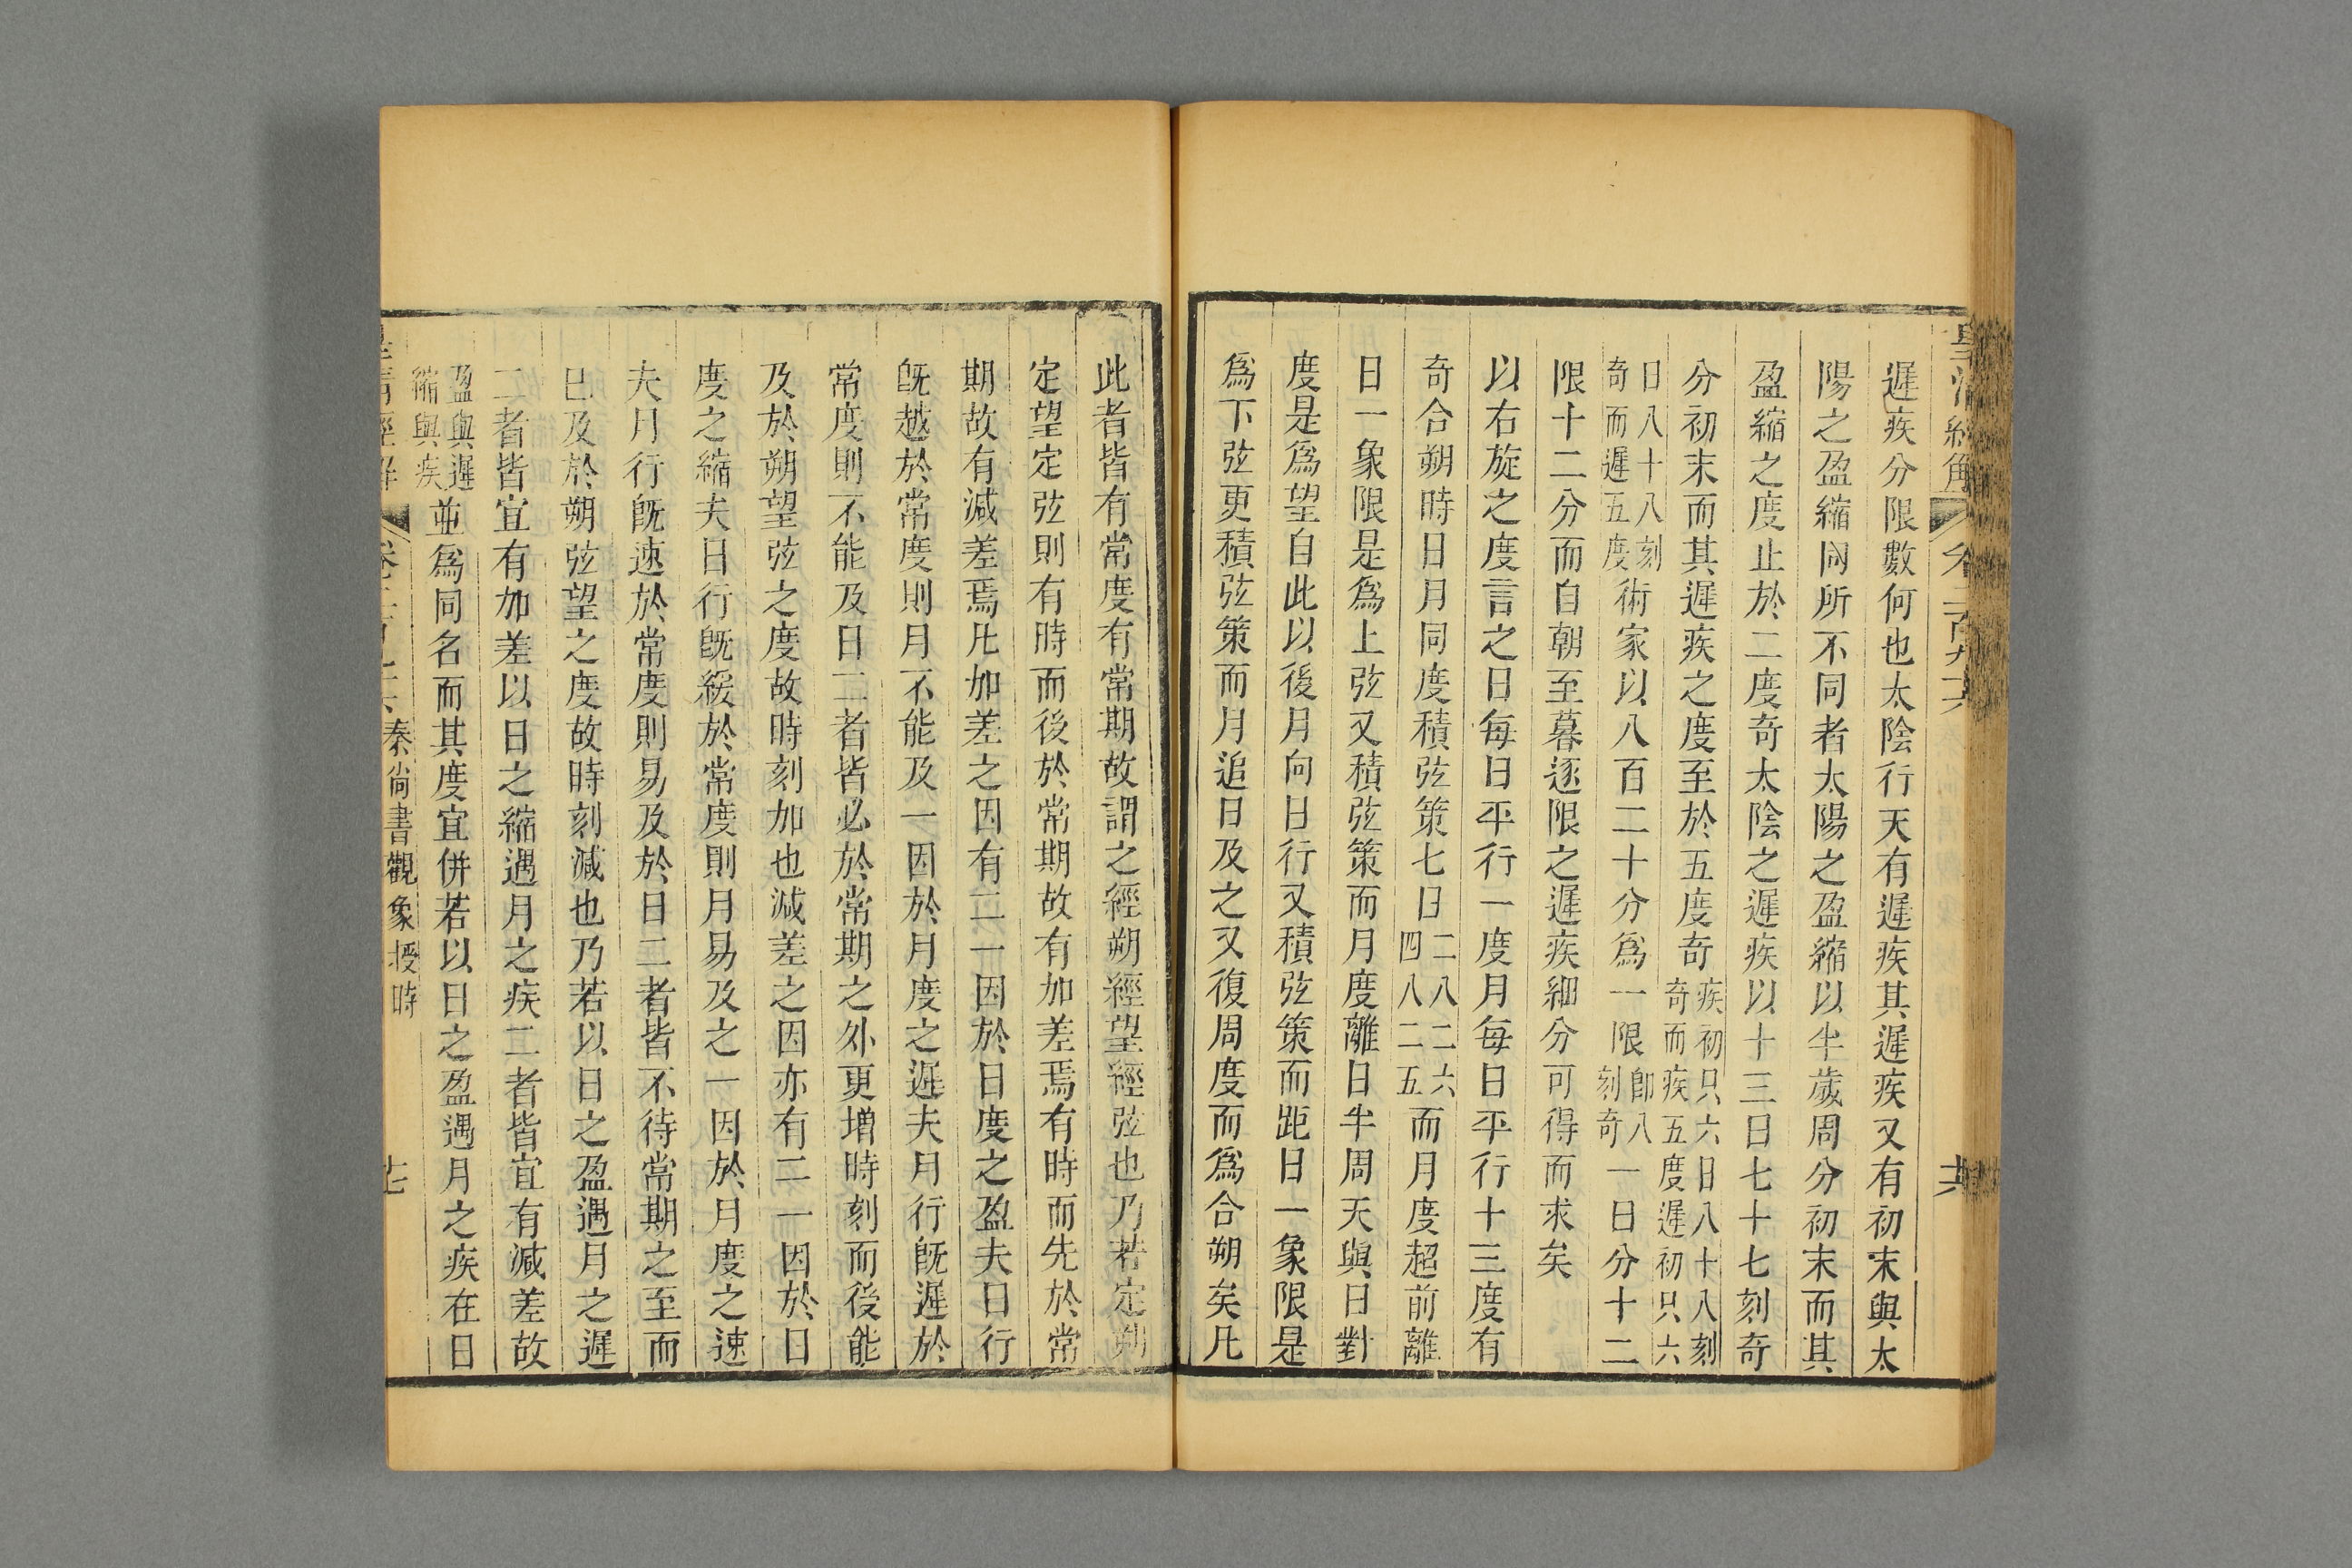 遲疾分限數何也太陰行天有遲疾其遲疾又有初末與太
陽之盈縮同所不同者太陽之盈縮以半歲周分初末而其
盈縮之度止於二度奇太陰之遲疾以十三日七十七刻奇
分初末而其遲疾之度至於五度奇疾初只六日八十八刻奇而疾五度遲初只六
日八十八刻奇而遲五度術家以八百二十分爲一限卽八刻奇一日分十二
限十二分而自朝至暮逐限之遲疾細分可得而求矣
以右旋之度言之日每日平行一度月每日平行十三度有
奇合朔時日月同度積弦策七日二八二六四八二五而月度超前離
日一象限是爲上弦又積弦策而月度離日半周天與日對
度是爲望自此以後月向日行又積弦策而距日一象限是
爲下弦更積弦策而月追日及之又復周度而爲合朔矣凡
此者皆有常度有常期故謂之經朔經望經弦也乃若定朔
定望定弦則有時而後於常期故有加差焉有時而先於常
期故有減差焉凡加差之因有二一因於日度之盈夫日行
旣越於常度則月不能及一因於月度之遲夫月行旣遲於
常度則不能及日二者皆必於常期之外更增時刻而後能
及於朔望弦之度故時刻加也減差之因亦有二一因於日
度之縮夫日行旣緩於常度則月易及之一因於月度之速
夫月行旣速於常度則易及於日二者皆不待常期之至而
巳及於朔弦望之度故時刻減也乃若以日之盈遇月之遲
二者皆宜有加差以日之縮遇月之疾二者皆宜有減差故
盈與遲縮與疾並爲同名而其度宜併若以日之盈遇月之疾在日
秦尙書觀象授時